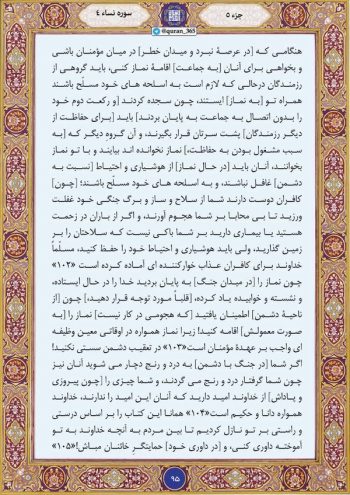 جزء ۵
سوره نساء ٤
@quran_365
هنگامی که [در عرصهٔ نبرد و میدان خطر] در میان مؤمنان باشی
و بخواهی برای آنان [به جماعت] اقامهٔ نماز کنی، باید گروهی از
رزمندگان درحالی که لازم است به اسلحه های خود مسلّح باشند
همراه تو [به نماز] ایستند، چون سجده کردند [و رکعت دوم خود
را بدون اتصال به جماعت به پایان بردند] باید [برای حفاظت از
دیگر رزمندگان] پشت سرتان قرار بگیرند، و آن گروه دیگر که [به
سبب مشغول بودن به حفاظت،] نماز نخوانده اند بیایند و با تو نماز
بخوانند، آنان باید [در حال نماز] از هوشیاری و احتیاط [نسبت به
دشمن] غافل نباشند، و به اسلحه های خود مسلّح باشند؛ [چون]
کافران دوست دارند شما از سلاح و ساز و برگ جنگی خود غفلت
ورزید تا بی محابا بر شما هجوم آورند، و اگر از باران در زحمت
هستید یا بیماری دارید بر شما باکی نیست که سلاحتان را بر
زمین گذارید، ولی باید هوشیاری و احتیاط خود را حفظ کنید، مسلّماً
خداوند برای کافران عذاب خوارکننده ای آماده کرده است «۱۰۲»
چون نماز را [در میدان جنگ] به پایان بردید خدا را در حال ایستاده،
و نشسته و خوابیده یاد کرده، [قلباً مورد توجه قرار دهید]، چون [از
ناحیهٔ دشمن] اطمینان یافتید [که هجومی در کار نیست] نماز را [به
صورت معمولش] اقامه کنید! زیرا نماز همواره در اوقاتی معین وظیفه
ای واجب بر عهدهٔ مؤمنان است«۱۰۳» در تعقیب دشمن سستی نکنید!
اگر شما [در جنگ با دشمن] به درد و رنج دچار می شوید آنان نیز
چون شما گرفتار درد و رنج می گردند، و شما چیزی را [چون پیروزی
و پاداش] از خداوند امید دارید که آنان این امید را ندارند، خداوند
همواره دانا و حکیم است«۱۰۴» همانا این کتاب را بر اساس درستی
و راستی بر تو نازل کردیم تا بین مردم به آنچه خداوند به تو
آموخته داوری کنی، و [در داوری خود] حمایتگرِ خائنان مباش!«۱۰۵»
۹۵